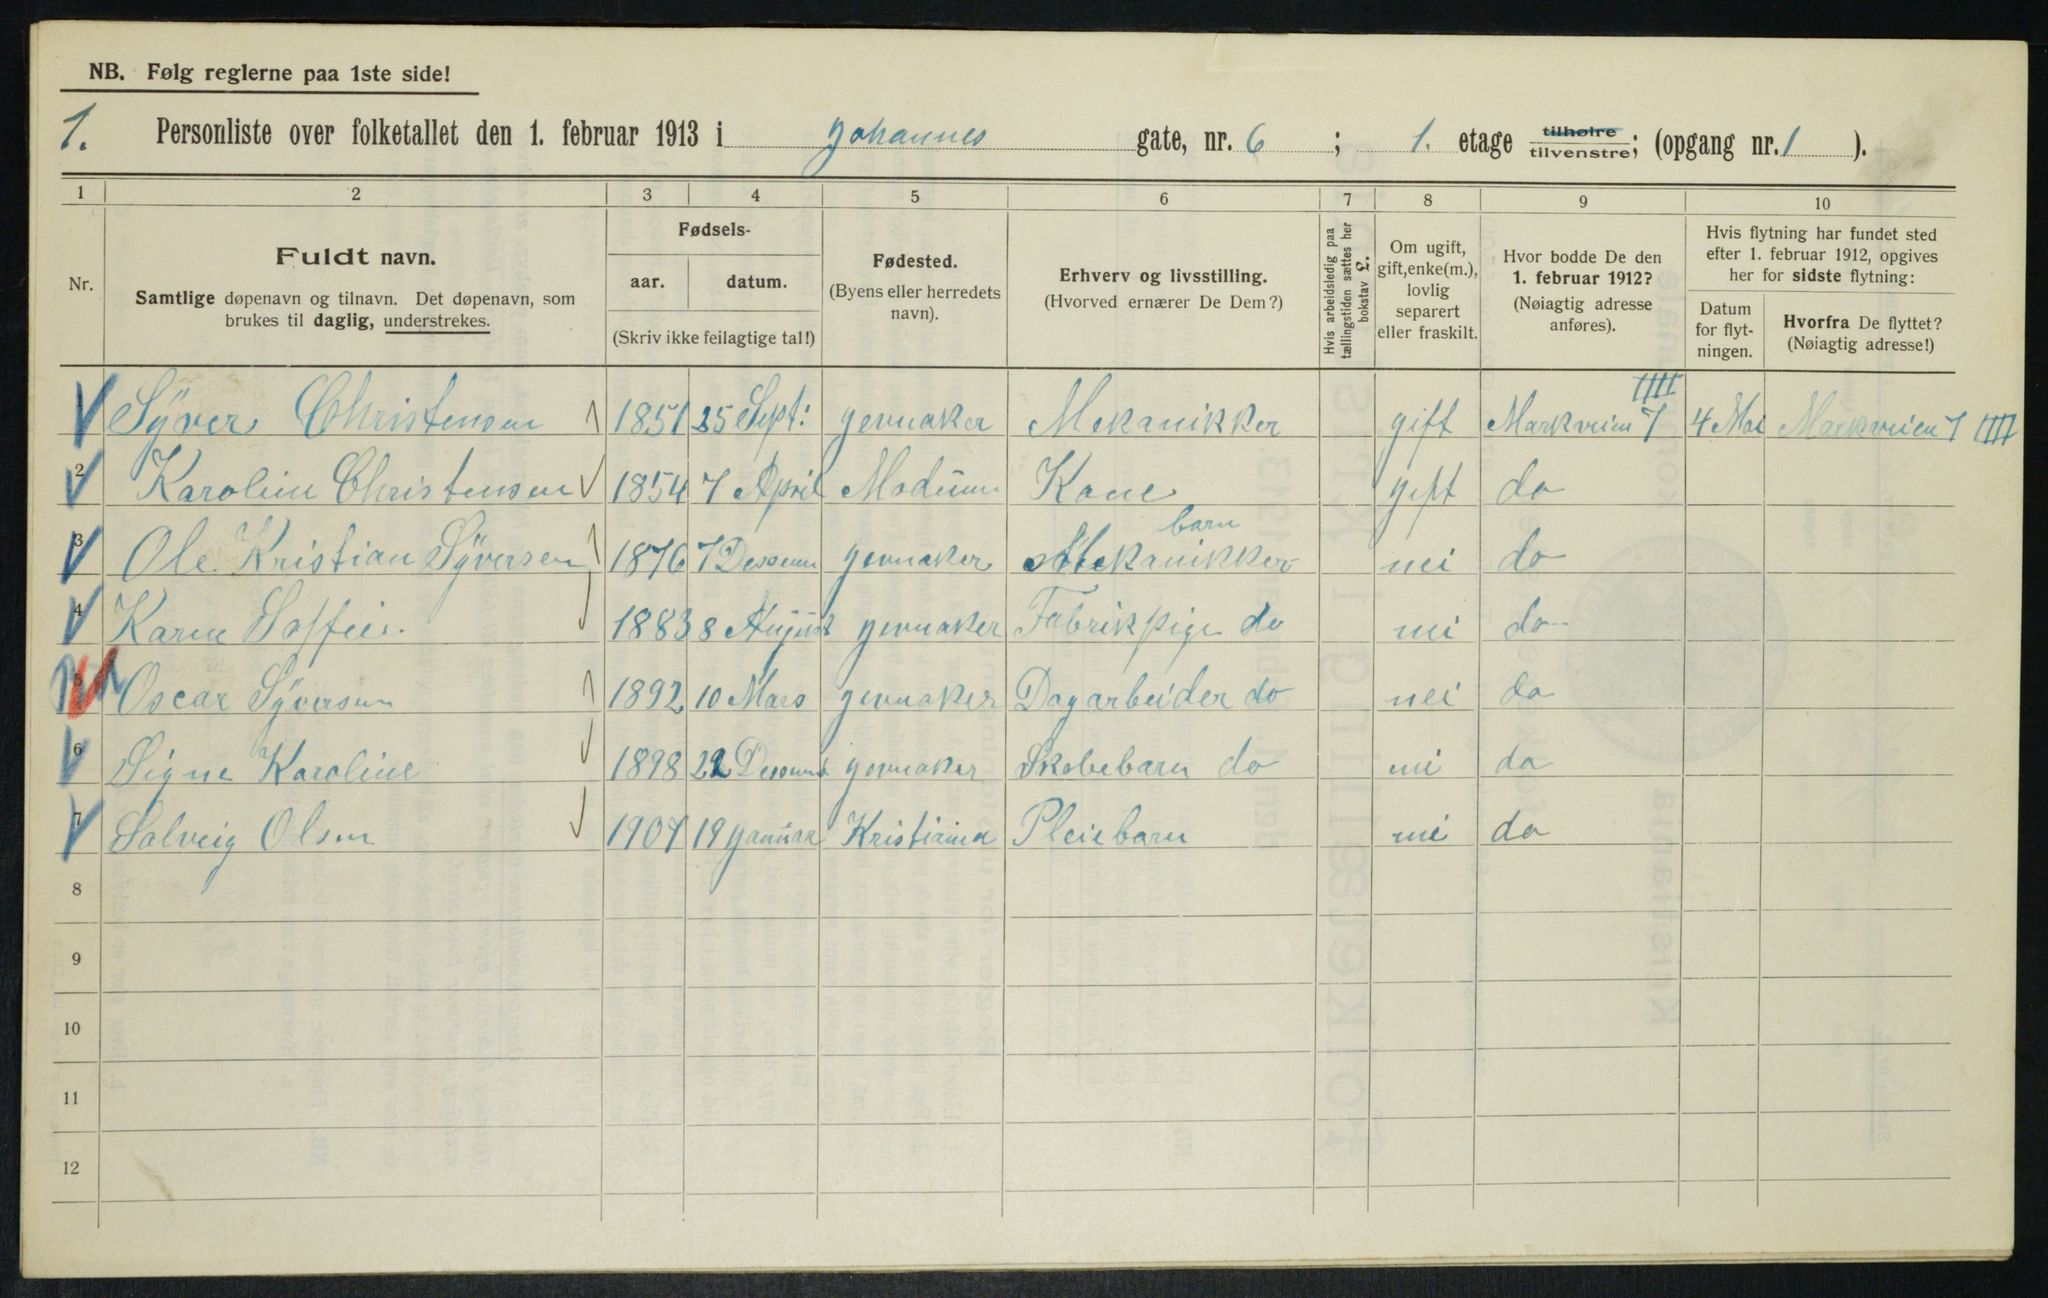 NB. Følg reglerne paa 1ste side!
1. Personliste over folketallet den 1. februar 1913 i Johannes gate, nr. 6 ; 1. etage tilhøire tilvenstre; (opgang nr. 1 ).
1 2 3 4 5 6 7 8 9 10
Nr.
Fuldt navn.
Samtlige døpenavn og tilnavn. Det døpenavn, som
brukes til daglig, understrekes.
Fødsels-
aar. datum.
(Skriv ikke feilagtige tal!)
Fødested.
(Byens eller herredets
navn).
Erhverv og livsstilling.
(Hvorved ernærer De Dem?)
Hvis arbeidsledig paa
tællingstiden sættes her
bokstav L.
Om ugift,
gift, enke(m.),
lovlig
separert
eller fraskilt.
Hvor bodde De den
1. februar 1912?
(Nøiagtig adresse
anføres).
Hvis flytning har fundet sted
efter 1. februar 1912, opgives
her for sidste flytning:
Datum
for flyt-
ningen.
Hvorfra De flyttet?
(Nøiagtig adresse!)
1 Syver Christensen 1851 25 Sept: Jevnaker Mekanikker gift Markveien 7 4 Mai Markveien 7
2 Karoline Christensen 1854 7 April Modum Kone gift do
barn
3 Ole Kristian Syversen 1876 7 Dessem Jevnaker Mekanikker nei do
4 Karen Soffie 1883 8 August Jevnaker Fabrikpige do nei do
5 Oscar Syversen 1892 10 Mars Jevnaker Dagarbeider do nei do
6 Signe Karoline 1898 22 Jevnaker Skolebarn do nei do
7 Solveig Olsen 1907 19 Januar Kristiania Pleiebarn nei do
8
9
10
11
12